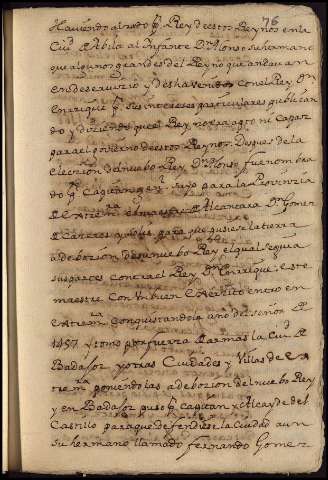 76
Haviendo alzado pr. Rey de estos Reynos en la
Ciud. de Abila al Infante Dn. Alonso su hermano
que algunos grandes del Reyno que andavan
en deseruicio y deshavenidos con el Rey Dn.
Enrrique pr. sus intereses particulares publican
do y diciendo que el Rey no era apto ni Capaz
para el govierno de estos Reynos. Despues de la
eleccion de nuebo Rey Dn. Alonso fue nombra
do pr. Capitan gen.l suyo para la Provinzia
de Extrem.ra el maestre de Alcantara Dn. Gomez
de Cazeres y Solis para que pusiese la tierra
a deboción del nuebo Rey el qual seguia
sus partes contra el Rey Dn. Enrrique, este
maestre con un buen exército entró en
Extrem.ra conquistandola año del señor de
1457 y tomo por fuerza de armas la Ciud. de
Badajoz y otras Ciudades y Villas de Ex
trem.ra poniendolas a deboción del nuebo Rey
y en Badajoz puso pr. capitan y Alcayde del
Castillo para que defendiese la Ciudad a un
su hermano llamado fernando Gomez